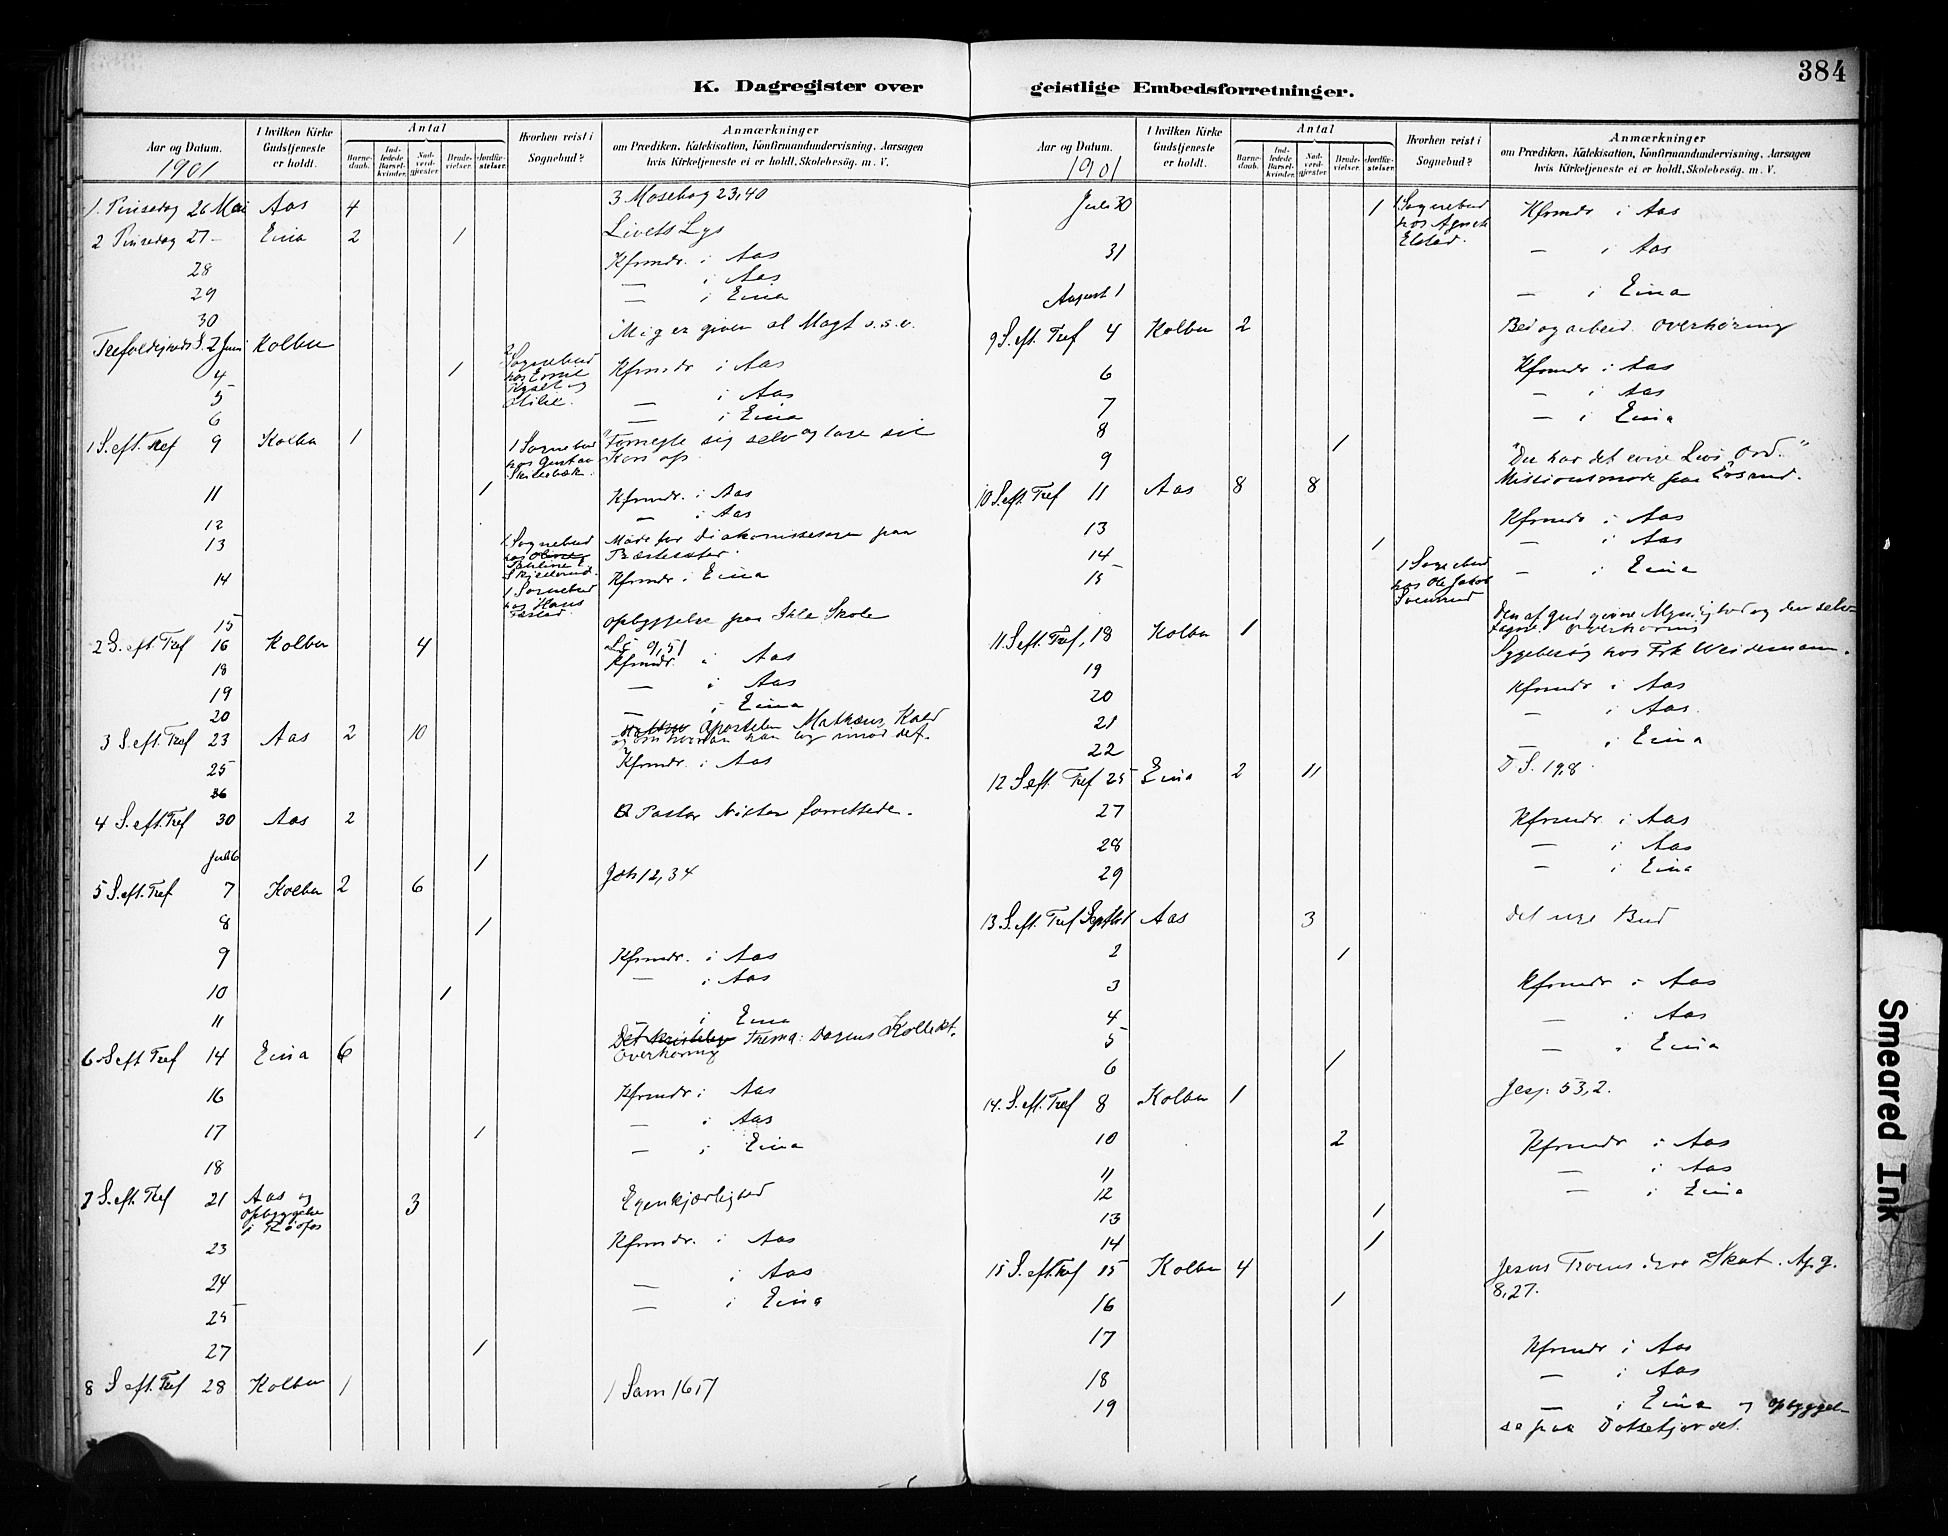 384
K. Dagregister over geistlige Embedsforretninger.
Aar og Datum. 1901
I hvilken Kirke Gudstjeneste er holdt.
Antal
Barnedaab.
Indledede Barselkvinder.
Nadverdgjester
Brudevielser.
Jordfæstelser.
Hvorhen reist i Sognebud?
Anmærkninger
om Prædiken, Katekisation, Konfirmandundervisning, Aarsagen
hvis Kirketjeneste ei er holdt, Skolebesøg. m. V.
1. Pinsedag 26 Mai Aas 4 3 Mosebog 23,40
2 Pinsedag 27 – Eina 2 1 Livets Lys
28 Kfrmdr. i Aas
29 — i Aas
30 — i Eina
Trefoldigheds S. 2 Juni Kolbu Mig er given al Magt o.s.v.
4 1 2 Sognebud hos Kfrmdr i Aas
5 — i Aas
6 — i Eina
1 S. eft. Tref 9 Kolbu 1 1 Sognebud hos Gustav Fornegte sig selv og tage sit Kors op.
11 1 Kfrmdr. i Aas
12 — i Aas
13 1 Sognebud hos Møde for Diakonissesagen paa
14 1 Sognebud hos Hans Kfrmdr i Eina
15 opbyggelse paa Skole
2 S. eft. Tref 16 Kolbu 4 9,51
18 Kfrmdr. i Aas
19 — i Aas
20 — i Eina
3 S. eft. Tref 23 Aas 2 10 Apostelen Mathæus Kald
og om hvordan han tog imod det.
25 Kfrmdr. i Aas
26
4 S. eft. Tref 30 Aas 2 Pastor forrettede.
Juli 6 1
5 S. eft. Tref 7 Kolbu 2 6 Joh 12,34
8 1
9 Kfrmdr. i Aas
10 1 — i Aas
11 — i Eina
6 S. eft Tref 14 Eina 6 Thema: Dagens Kollekt.
Overhøring
16 Kfrmdr i Aas
17 1 — i Aas
18 — i Eina
7 S. eft. Tref 21 Aas og opbyggelse i 3 Egenkjærlighed
23 Kfrmdr. i Aas
24 — i Aas
25 — i Eina
27 1
8 S eft. Tref 28 Kolbu 1 1 Sam 16,7
Aar og Datum. 1901
I hvilken Kirke Gudstjeneste er holdt.
Antal
Barnedaab.
Indledede Barselkvinder.
Nadverdgjester
Brudevielser.
Jordfæstelser.
Hvorhen reist i Sognebud?
Anmærkninger
om Prædiken, Katekisation, Konfirmandundervisning, Aarsagen
hvis Kirketjeneste ei er holdt, Skolebesøg. m. V.
Juli 30 1 1 Sognebud hos Elstad. Kfrmdr i Aas
31 — i Aas
August 1 — i Eina
9 S. eft. Tref 4 Kolbu 2 Bed og arbeid. Overhøring
6 Kfrmdr i Aas
7 — i Aas
8 — i Eina
9 1
10 S. eft Tref 11 Aas 8 8 "Du har det evige Livs Ord."
Missionsmøde paa
13 Kfrmdr i Aas
14 1 — i Aas
15 1 Sognebud hos Ole Jakob — i Eina
11 S. eft Tref, 18 Kolbu 1 Den af Gud givne Myndighed og den selv-
tagne. Overhøring
19 Sygebesøg hos Frk Weidemann.
20 Kfrmdr i Aas
21 — i Aas.
22 — i Eina
12 S. eft. Tref 25 Eina 2 11 D S. 19,8.
27 Kfrmdr. i Aas
28 — i Aas
29 — i Eina
13 S. eft. Tref Septbr 1 Aas 3 Det nye Bud
2 1
3 Kfrmdr i Aas
4 — i Aas
5 — i Eina
6 1
14. S. eft. Tref 8 Kolbu 1 Jesj. 53,2.
10 2 Kfrmdr i Aas
11 — i Aas
12 — i Eina
13 1
14 1
15 S. eft. Tref 15 Kolbu 4 Skat. Ap. g.
8,27.
16 1
17 Kfrmdr i Aas
18 — i Aas
19 — i Eina og opbyggel-
se paa
Smeared Ink